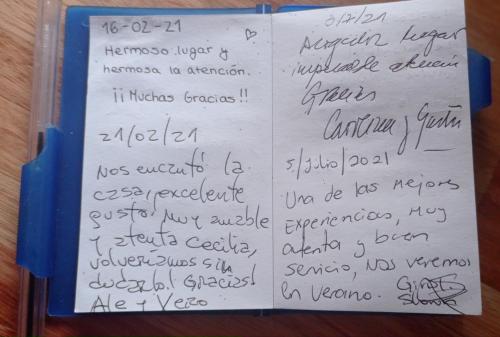 16-02-21
Hermoso lugar y
hermosa la atención.
¡¡Muchas Gracias!!
21/02/21
Nos encantó la
casa, excelente
gusto. Muy amable
y atenta Cecilia,
volveremos sin
dudarlo! Gracias!
Ale y Vero
3/7/21
lugar
impecable atención
Gracias
Carolina y Gastón
5/Julio/2021
Una de las mejores
Experiencias, muy
atenta y buen
servicio, nos veremos
en verano.